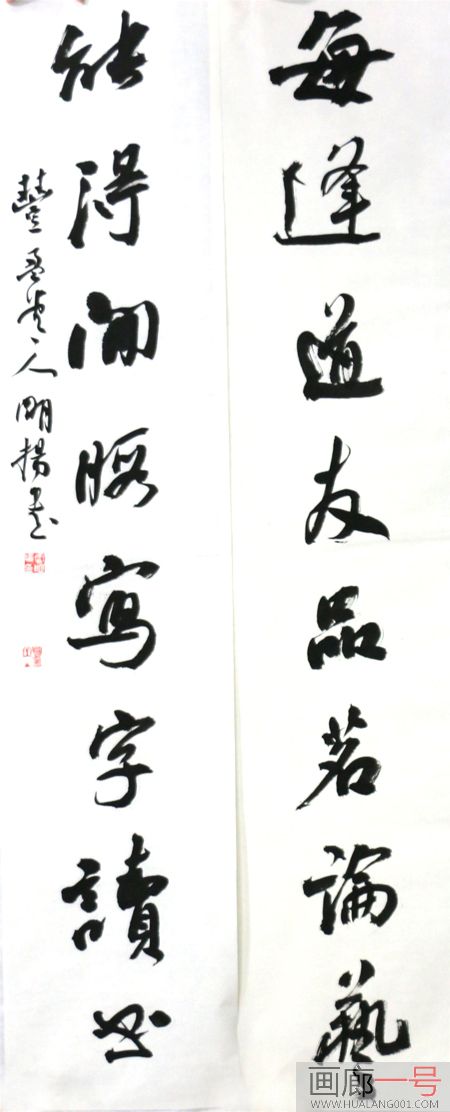 每逢道友品茗論藝
能得閒暇寫字讀书
豐盈堂人明揚书
画廊一号
WWW.HUALANG001.COM